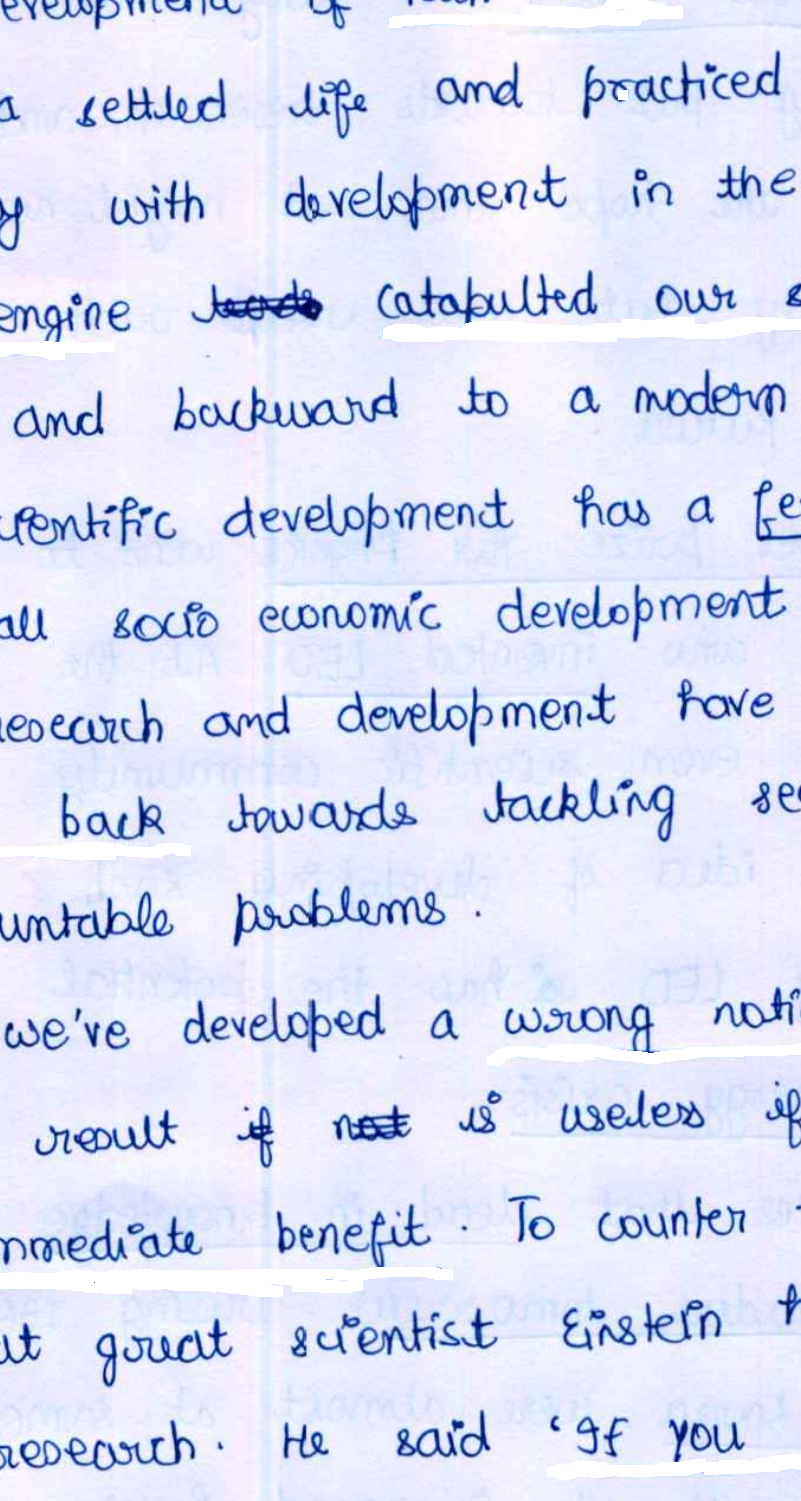 a settled life and practiced
y with development in the
engine catabulted our s
and backward to a modern
cientific development has a
all socio economic development
research and development have
back towards tackling se
untable problems.
we've developed a wrong noti
result if not is useless if
mmediate benefit. To counter
at great scientist Einstein h
research. He said 'If you